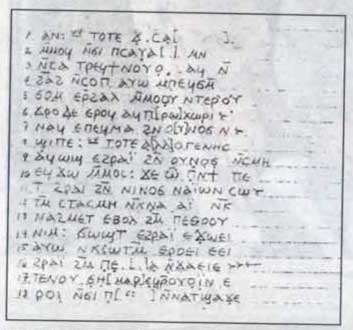 1. ⲁⲛ: ⲧⲟⲧⲉ ⲁ̣.ⲥⲁ[ ].
2. ⲙⲙⲟϥ ⲛ̄ϭⲓ ⲡⲥⲁⲩⲁ[.]. ⲙⲛ
3. ⲛ̄ⲥⲁ ⲧⲣⲉϥϯⲛⲟⲩⲟ̣. ⲁϥ ⲛ̄
4. ϩⲁϩ ⲛ̄ⲥⲟⲡ ⲁⲩⲱ ⲙⲡⲉϥϭⲙ
5. ϭⲟⲙ ⲉⲣϩⲁⲗ ⲙ̄ⲙⲟϥ ⲛⲧⲉⲣⲟⲩ
6. ϭⲣⲟ ⲇⲉ ⲉⲣⲟϥ ⲁϥⲡ[ⲣⲱ]ⲭⲱⲣⲓ
7. ⲛⲁϥ ⲉⲡⲉϥⲙⲁ ϩⲛ ⲟ[ⲩ]ⲛⲟϭ ⲛ
8. ϣⲓⲡⲉ: ⲧⲟⲧⲉ ⲁ[ⲗ]ⲗⲟⲅⲉⲛⲏⲥ
9. ⲁϥⲱϣ ⲉϩⲣⲁⲓ ϩⲛ ⲟⲩⲛⲟϭ ⲛ̄ⲥⲙⲏ
10. ⲉϥϫⲱ ⲙⲙⲟⲥ: ϫⲉ ⲱ̄ ⲡⲛⲧ ⲡⲉ
11. ⲧ ϩⲣⲁⲓ ϩⲛ̄ ⲛⲓⲛⲟϭ ⲛⲁⲓⲱⲛ ⲥⲱⲧ
12. ⲧⲙ ⲉⲧⲁⲥⲙⲏ ⲛⲅⲛⲁ ⲁⲓ ⲛⲅ
13. ⲛⲁϩⲙⲉⲧ ⲉⲃⲟⲗ ϩⲙ ⲡⲉⲑⲟⲟⲩ
14. ⲛⲓⲙ: ϭⲱϣⲧ ⲉϩⲣⲁⲓ ⲉϫⲱⲉⲓ
15. ⲁⲩⲱ ⲛⲅⲥⲱⲧⲙ̄ ⲉⲣⲟⲉⲓ ⲉⲉⲓ
16. ϩⲣⲁⲓ ϩⲙ ⲡⲉ[..]ⲁ ⲛ̄ϫⲁⲉⲓⲉ
17. ⲧⲉⲛⲟⲩ ⲉⲏ[ⲙⲁⲣ]ⲉϥⲣⲟⲩⲟⲓⲛ ⲉ
18. ⲣⲟⲓ ⲛ̄ϭⲓ ⲡ[ ] ⲛ̄ⲛⲁⲧϣⲁϫⲉ